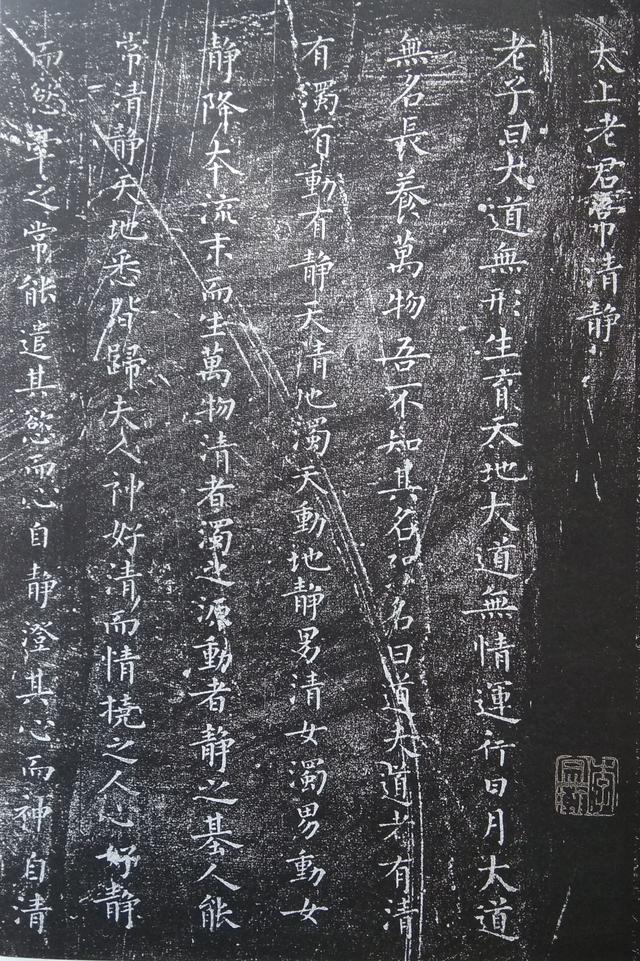 太上老君常清静
老子曰大道無形生育天地大道無情運行日月大道
無名長養萬物吾不知其名強名曰道夫道者有清
有濁有動有静天清地濁天動地静男清女濁男動女
静降本流末而生萬物清者濁之源動者静之基人能
常清静天地悉皆歸夫人神好清而情撓之人心好静
而慾牽之常能遣其慾而心自静澄其心而神自清